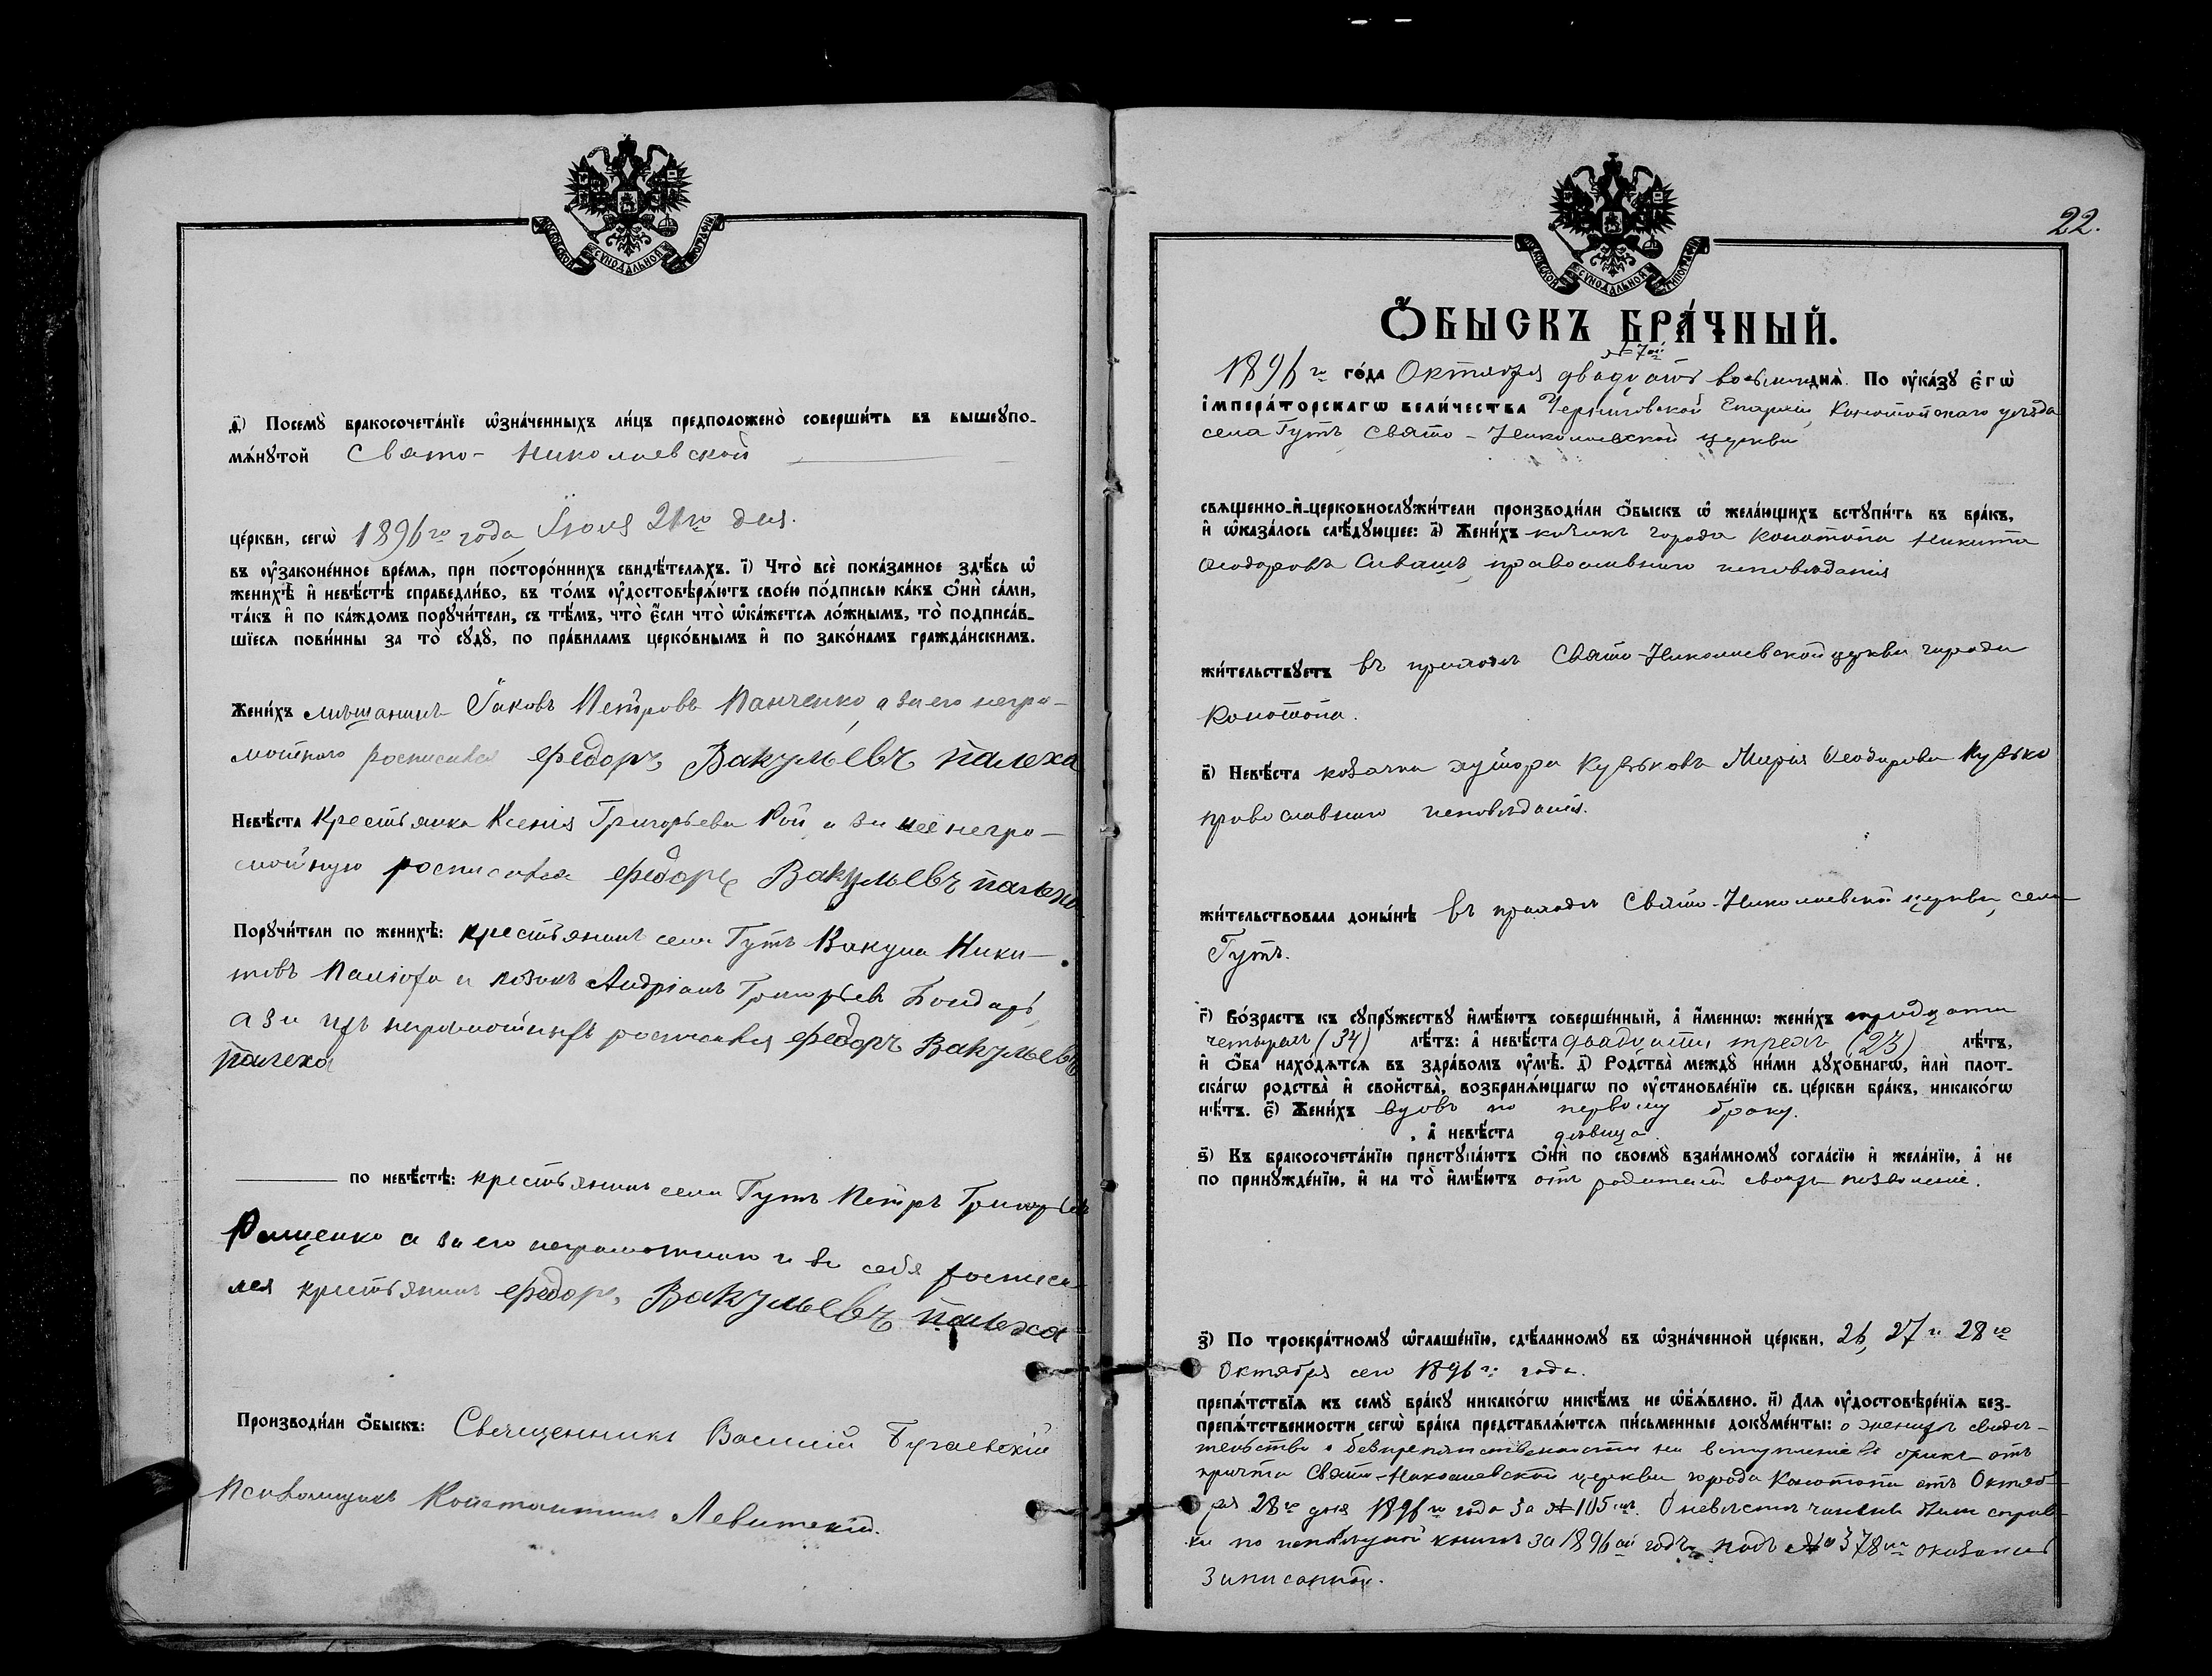 МОСКОВСКОЙ СѴНОДАЛЬНОЙ ТИПОГРАФІИ
ѳ҃) Посемꙋ̀ бракосочета́нїе ѡ҆зна́ченныхъ ли́цъ предположено̀ соверши́ть въ вышеꙋпо-
мѧ́нꙋтой Свято-Николаевской
це́ркви, сегѡ̀ 1896го года Іюля 21го дня.
въ ᲂу҆зако́ненное вре́мѧ, при посторо́ннихъ свидѣ́телѧхъ. і҃) Что̀ всѐ пока́занное здѣ́сь ѡ҆
женихѣ̀ и҆ невѣ́стѣ справедли́во, въ то́мъ ᲂу҆достовѣрѧ́ютъ свое́ю по́дписью ка́къ ѻ҆нѝ са́ми,
та́къ и҆ по ка́ждомъ порꙋчи́тели, съ тѣ́мъ, что̀ є҆́сли что̀ ѡ҆ка́жетсѧ ло́жнымъ, то̀ подписа́в-
шїесѧ пови́нны за то̀ сꙋдꙋ̀, по пра́виламъ церко́внымъ и҆ по зако́намъ гражда́нскимъ.
Жени́хъ мѣщанинъ Іаковъ Петровъ Панченко, а за его негра-
мотного росписался Федоръ Вакульевъ палеха
Невѣ́ста Крестьянка Ксенія Григорьева Рой а за неё негра-
мотную росписался Федоръ Вакульевъ палеха
Порꙋчи́тели по женихѣ̀: крестьянинъ села Гутъ Вакула Ники-
товъ и козакъ Андріанъ Григорьевъ Бондарь,
а за ихъ неграмотныхъ росписался Федоръ Вакульевъ
палеха
по невѣ́стѣ: крестьянинъ села Гутъ Петръ Григорьевъ
а за его неграмотного и за себя росписа-
лся крестьянинъ Федоръ Вакульевъ палеха
Производи́ли ѻ҆́быскъ: Священникъ Василій Бугаевскій
Псаломщикъ Константинъ Левитскій.
22.
МОСКОВСКОЙ СѴНОДАЛЬНОЙ ТИПОГРАФІИ
Ѻ҆́БЫСКЪ БРА́ЧНЫЙ.
№ 7ой
1896го го́да Октября двадцать восьмого днѧ̀. По ᲂу҆ка́зꙋ є҆гѡ̀
і҆мпера́торскагѡ вели́чества Черниговской Епархіи, Конотопскаго уѣзда
села Гутъ Свято-Николаевской церкви
свѧще́нно-и҆-церковнослꙋжи́тели производи́ли ѻ҆́быскъ ѡ҆ жела́ющихъ встꙋпи́ть въ бра́къ,
и҆ ѡ҆каза́лось слѣ́дꙋющее: а҃) Жени́хъ козакъ города Конотопа Никита
Ѳеодоровъ Сивашъ, православного исповѣданія
жи́тельствꙋетъ въ приходѣ Свято-Николаевской церкви города
Конотопа.
в҃) Невѣ́ста козачка хутора Кузьковъ Марія Ѳеодорова Кузько
православного исповѣданія.
жи́тельствовала доны́нѣ въ приходѣ Свято-Николаевской церкви, села
Гутъ.
г҃) Во́зрастъ къ сꙋпрꙋ́жествꙋ и҆мѣ́ютъ соверше́нный, а҆ и҆́меннѡ: жени́хъ тридцати
четырехъ (34) лѣ́тъ: а҆ невѣ́ста двадцати трехъ (23) лѣ́тъ,
и҆ ѻ҆́ба нахо́дѧтсѧ въ здра́вомъ ᲂу҆мѣ̀. д҃) Родства̀ междꙋ̀ ни́ми дꙋхо́внагѡ, и҆лѝ плот-
ска́гѡ родства̀ и҆ сво́йства̀, возбранѧ́ющагѡ по ᲂу҆становле́нїю св. це́ркви бра́къ, никако́гѡ
нѣ́тъ. є҃) Жени́хъ вдовъ по первому браку.
, а҆ невѣ́ста дѣвица.
ѕ҃) Къ бракосочета́нїю пристꙋпа́ютъ ѻ҆нѝ по своемꙋ̀ взаи́мномꙋ согла́сїю и҆ жела́нїю, а҆ не
по принꙋжде́нїю, и҆ на то̀ и҆мѣ́ютъ отъ родителей своихъ позволеніе.
з҃) По троекра́тномꙋ ѡ҆глаше́нїю, сдѣ́ланномꙋ въ ѡ҆зна́ченной це́ркви, 26, 27 и 28го
Октября сего 1896го года.
препѧ́тствїѧ къ семꙋ̀ бра́кꙋ никако́гѡ никѣ́мъ не ѡ҆б̾ѧ́влено. и҃) Длѧ ᲂу҆достовѣре́нїѧ без-
препѧ́тственности сегѡ̀ бра́ка представлѧ́ютсѧ пи́сьменные докꙋме́нты: о женихѣ свидѣ-
тельство о безпрепятственности на вступленіе въ бракъ отъ
причта Свято-Николаевской церкви города Конотопа отъ Октяб-
ря 28го дня 1896го года за № 105мъ. О невѣстѣ справ-
ки по исповѣдной книгѣ за 1896ой годъ подъ № 378
записанной.